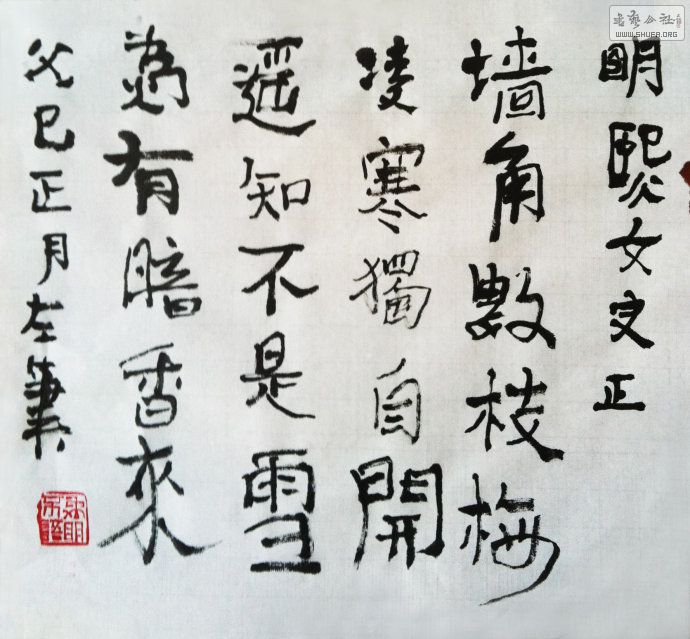 明熙女史正
墙角數枝梅
凌寒獨自開
遥知不是雪
為有暗香來
癸巳正月左筆
书艺公社
WWW.SHUFA.ORG